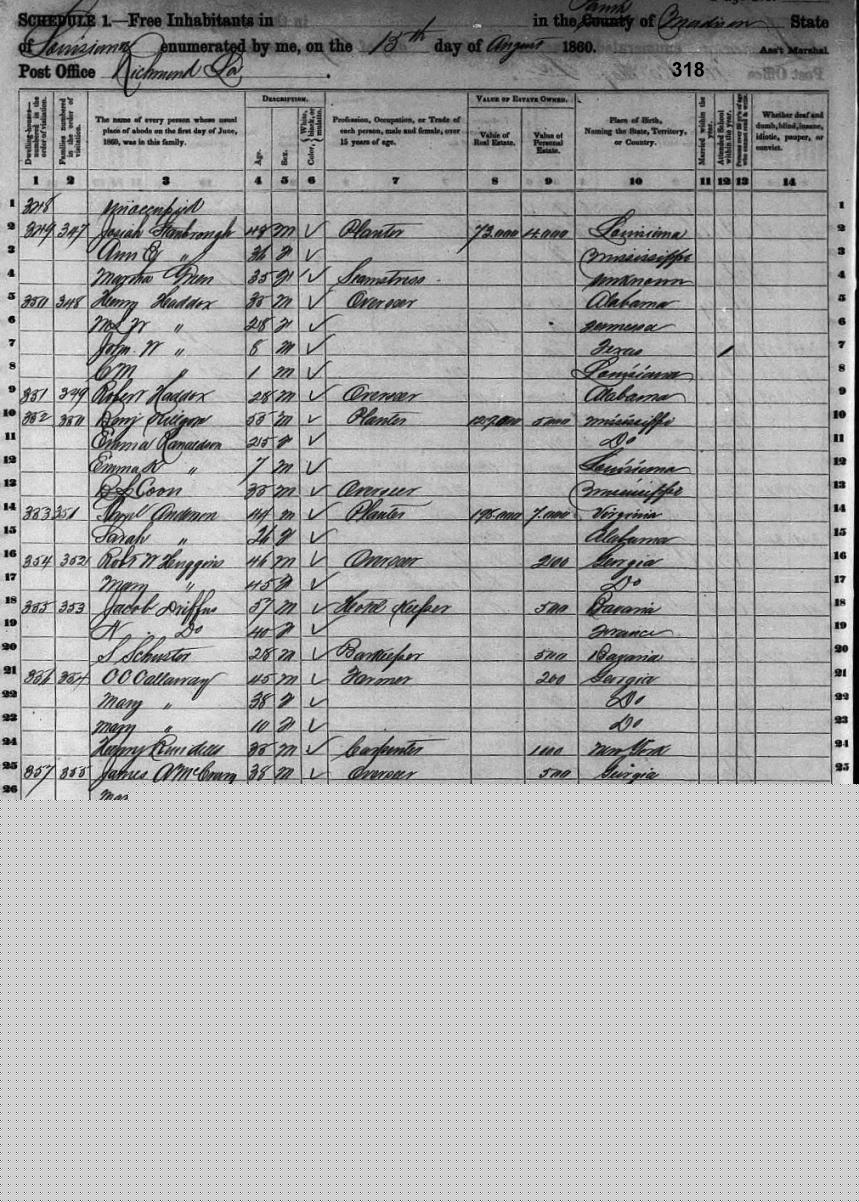 SCHEDULE 1.—Free Inhabitants in in the County of Madison State
of Louisiana enumerated by me, on the 15th day of August 1860. Ass't Marshal.
Post Office Richmond La. 318
DESCRIPTION. VALUE OF ESTATE OWNED.
Dwelling-houses numbered in the order of visitation. Families numbered in the order of visitation. The name of every person whose usual place of abode on the first day of June, 1860, was in this family. Age. Sex. Color, White, black, or mulatto. Profession, Occupation, or Trade of each person, male and female, over 15 years of age. Value of Real Estate. Value of Personal Estate. Place of Birth, Naming the State, Territory, or Country. Married within the year. Attended School within the year. Whether deaf and dumb, blind, insane, idiotic, pauper, or convict.
1 2 3 4 5 6 7 8 9 10 11 12 13 14
1 348 Unoccupied 1
2 349 347 Josiah Stanbrough 48 M ✓ Planter 73.000 4.000 Louisiana 2
3 Ann E " 36 F ✓ Mississippi 3
4 Martha Green 35 F ✓ Seamstress unknown 4
5 350 348 Henry Haddox 35 M ✓ Overseer Alabama 5
6 M L W " 28 F ✓ 6
7 John W " 8 M ✓ Texas / 7
8 M " 1 M ✓ Louisiana 8
9 351 349 Robert Haddox 28 M ✓ Overseer Alabama 9
10 352 350 Benj 55 M ✓ Planter 5.000 Mississippi 10
11 Emma Ranaldson 25 F ✓ Do 11
12 Emma K " 7 M ✓ Louisiana 12
13 Coon 35 M ✓ Overseer Mississippi 13
14 353 351 Anderson 44 M ✓ Planter 7.000 Virginia 14
15 Sarah " 26 F ✓ Alabama 15
16 354 352 Robt W Huggins 46 M ✓ Overseer 200 Georgia 16
17 Mary " 45 F ✓ Do 17
18 355 353 Jacob Driffus 57 M ✓ Hotel Keeper 500 Bavaria 18
19 N Do 40 F ✓ France 19
20 S Schuster 28 M ✓ Barkeeper 500 Bavaria 20
21 356 354 O C Callaway 45 M ✓ Farmer 200 Georgia 21
22 Mary " 38 F ✓ Do 22
23 Mary " 10 F ✓ Do 23
24 Henry 35 M ✓ Carpenter 100 New York 24
25 357 355 James A 38 M ✓ Overseer 500 Georgia 25
26